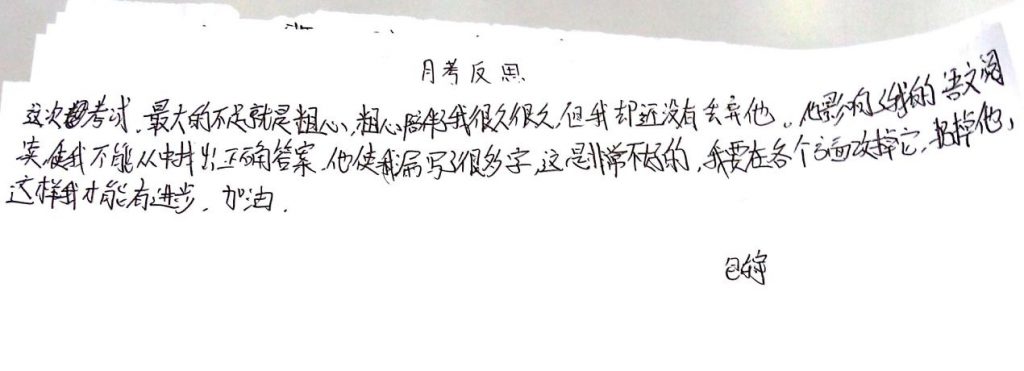 月考反思
这次考试，最大的不足就是粗心，粗心陪伴我很久很久，但我却还没有丢弃他。他影响了我的语文阅
读，使我不能从中找出正确答案。他使我漏写了很多字，这是非常不好的，我要在各个方面改掉它，扔掉他，
这样我才能有进步，加油。